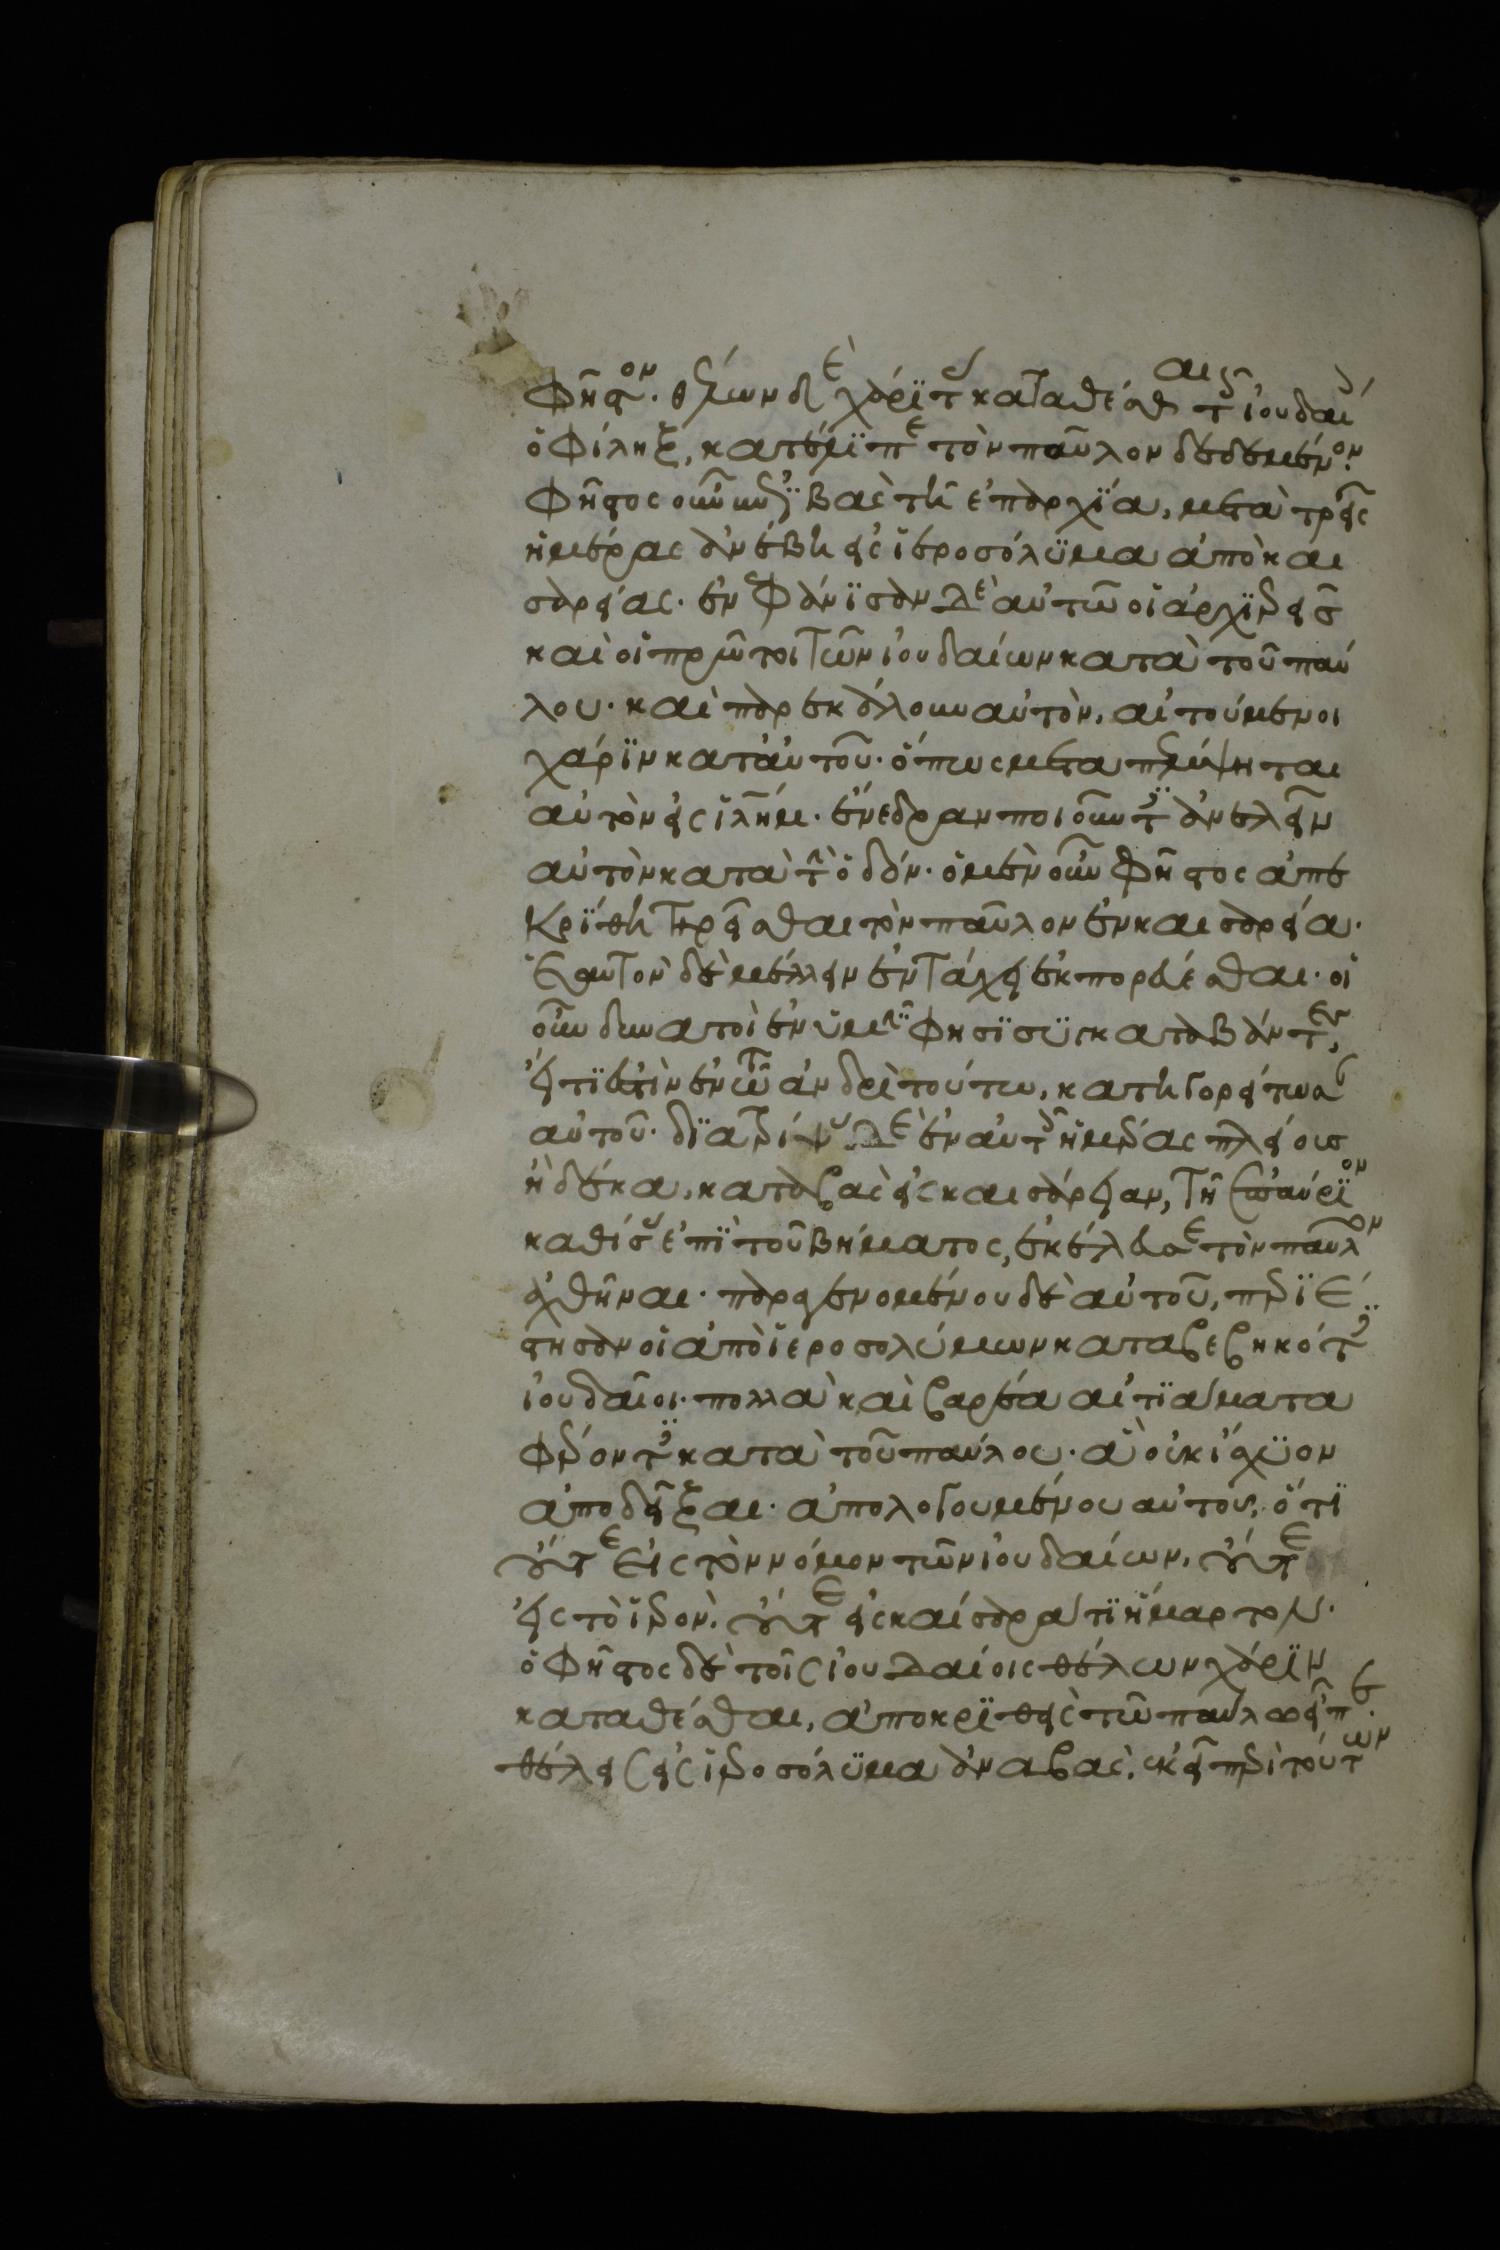 Φῆστον. θέλων δὲ χάριτας καταθέσθαι τοῖς ἰουδαίοις
ὁ Φίληξ, κατέλιπε τὸν παῦλον δεδεμένον.
Φῆστος οὖν ἐπιβὰς τῆ ἐπαρχία, μετὰ τρεῖς
ἡμέρας ἀνέβη εἰς ἱεροσόλυμα ἀπὸ και
σαρείας. ἐνεφάνισαν δὲ αὐτῶ οἱ ἀρχιερεῖς
καὶ οἱ πρῶτοι τῶν ἰουδαίων κατὰ τοῦ παύ
λου. καὶ παρεκάλουν αὐτὸν, αἰτούμενοι
χάριν κατ' αὐτοῦ. ὅπως μεταπέμψηται
αὐτὸν εἰς ἱλημ. ἐνέδραν ποιοῦντες ἀνελεῖν
αὐτὸν κατὰ τὴν ὁδόν. ὁ μὲν οὖν Φῆστος ἀπε
κρίθη τηρεῖσθαι τὸν παῦλον ἐν καισαρεία.
ἑαυτὸν δὲ μέλλειν ἐν τάχει ἐκπορεύεσθαι. οἱ
οὖν δυνατοὶ ἐν ὑμῖν Φησὶ συγκαταβάντες,
εἴ τι ἐστὶν ἐν τῶ ἀνδρὶ τούτω, κατηγορείτωσαν
αὐτοῦ. διατρίψας δὲ ἐν αὐτοῖς ἡμέρας πλείους
ἢ δέκα, καταβὰς εἰς καισάρειαν, τῆ ἐπαύριον
καθίσας ἐπὶ τοῦ βήματος, ἐκέλευσε τὸν παῦλον
ἀχθῆναι. παραγενομένου δὲ αὐτοῦ, περιέ
στησαν οἱ ἀπὸ ἱεροσολύμων καταβεβηκότες
ἰουδαῖοι. πολλὰ καὶ βαρέα αἰτιάματα
φέροντες κατὰ τοῦ παύλου. ἃ οὐκ ἴσχυον
ἀποδεῖξαι. ἀπολογουμένου αὐτοῦ, ὅτι
οὔτε εἰς τὸν νόμον τῶν ἰουδαίων, οὔτε
εἰς τὸ ἱερὸν. οὔτε εἰς καίσαρα τὶ ἥμαρτον.
ὁ Φῆστος δὲ τοῖς ἰουδαίοις θέλων χάριν
καταθέσθαι, ἀποκριθεὶς τῶ παύλω εἶπε.
θέλεις εἰς ἱεροσόλυμα ἀναβὰς, ἐκεῖ περὶ τούτων